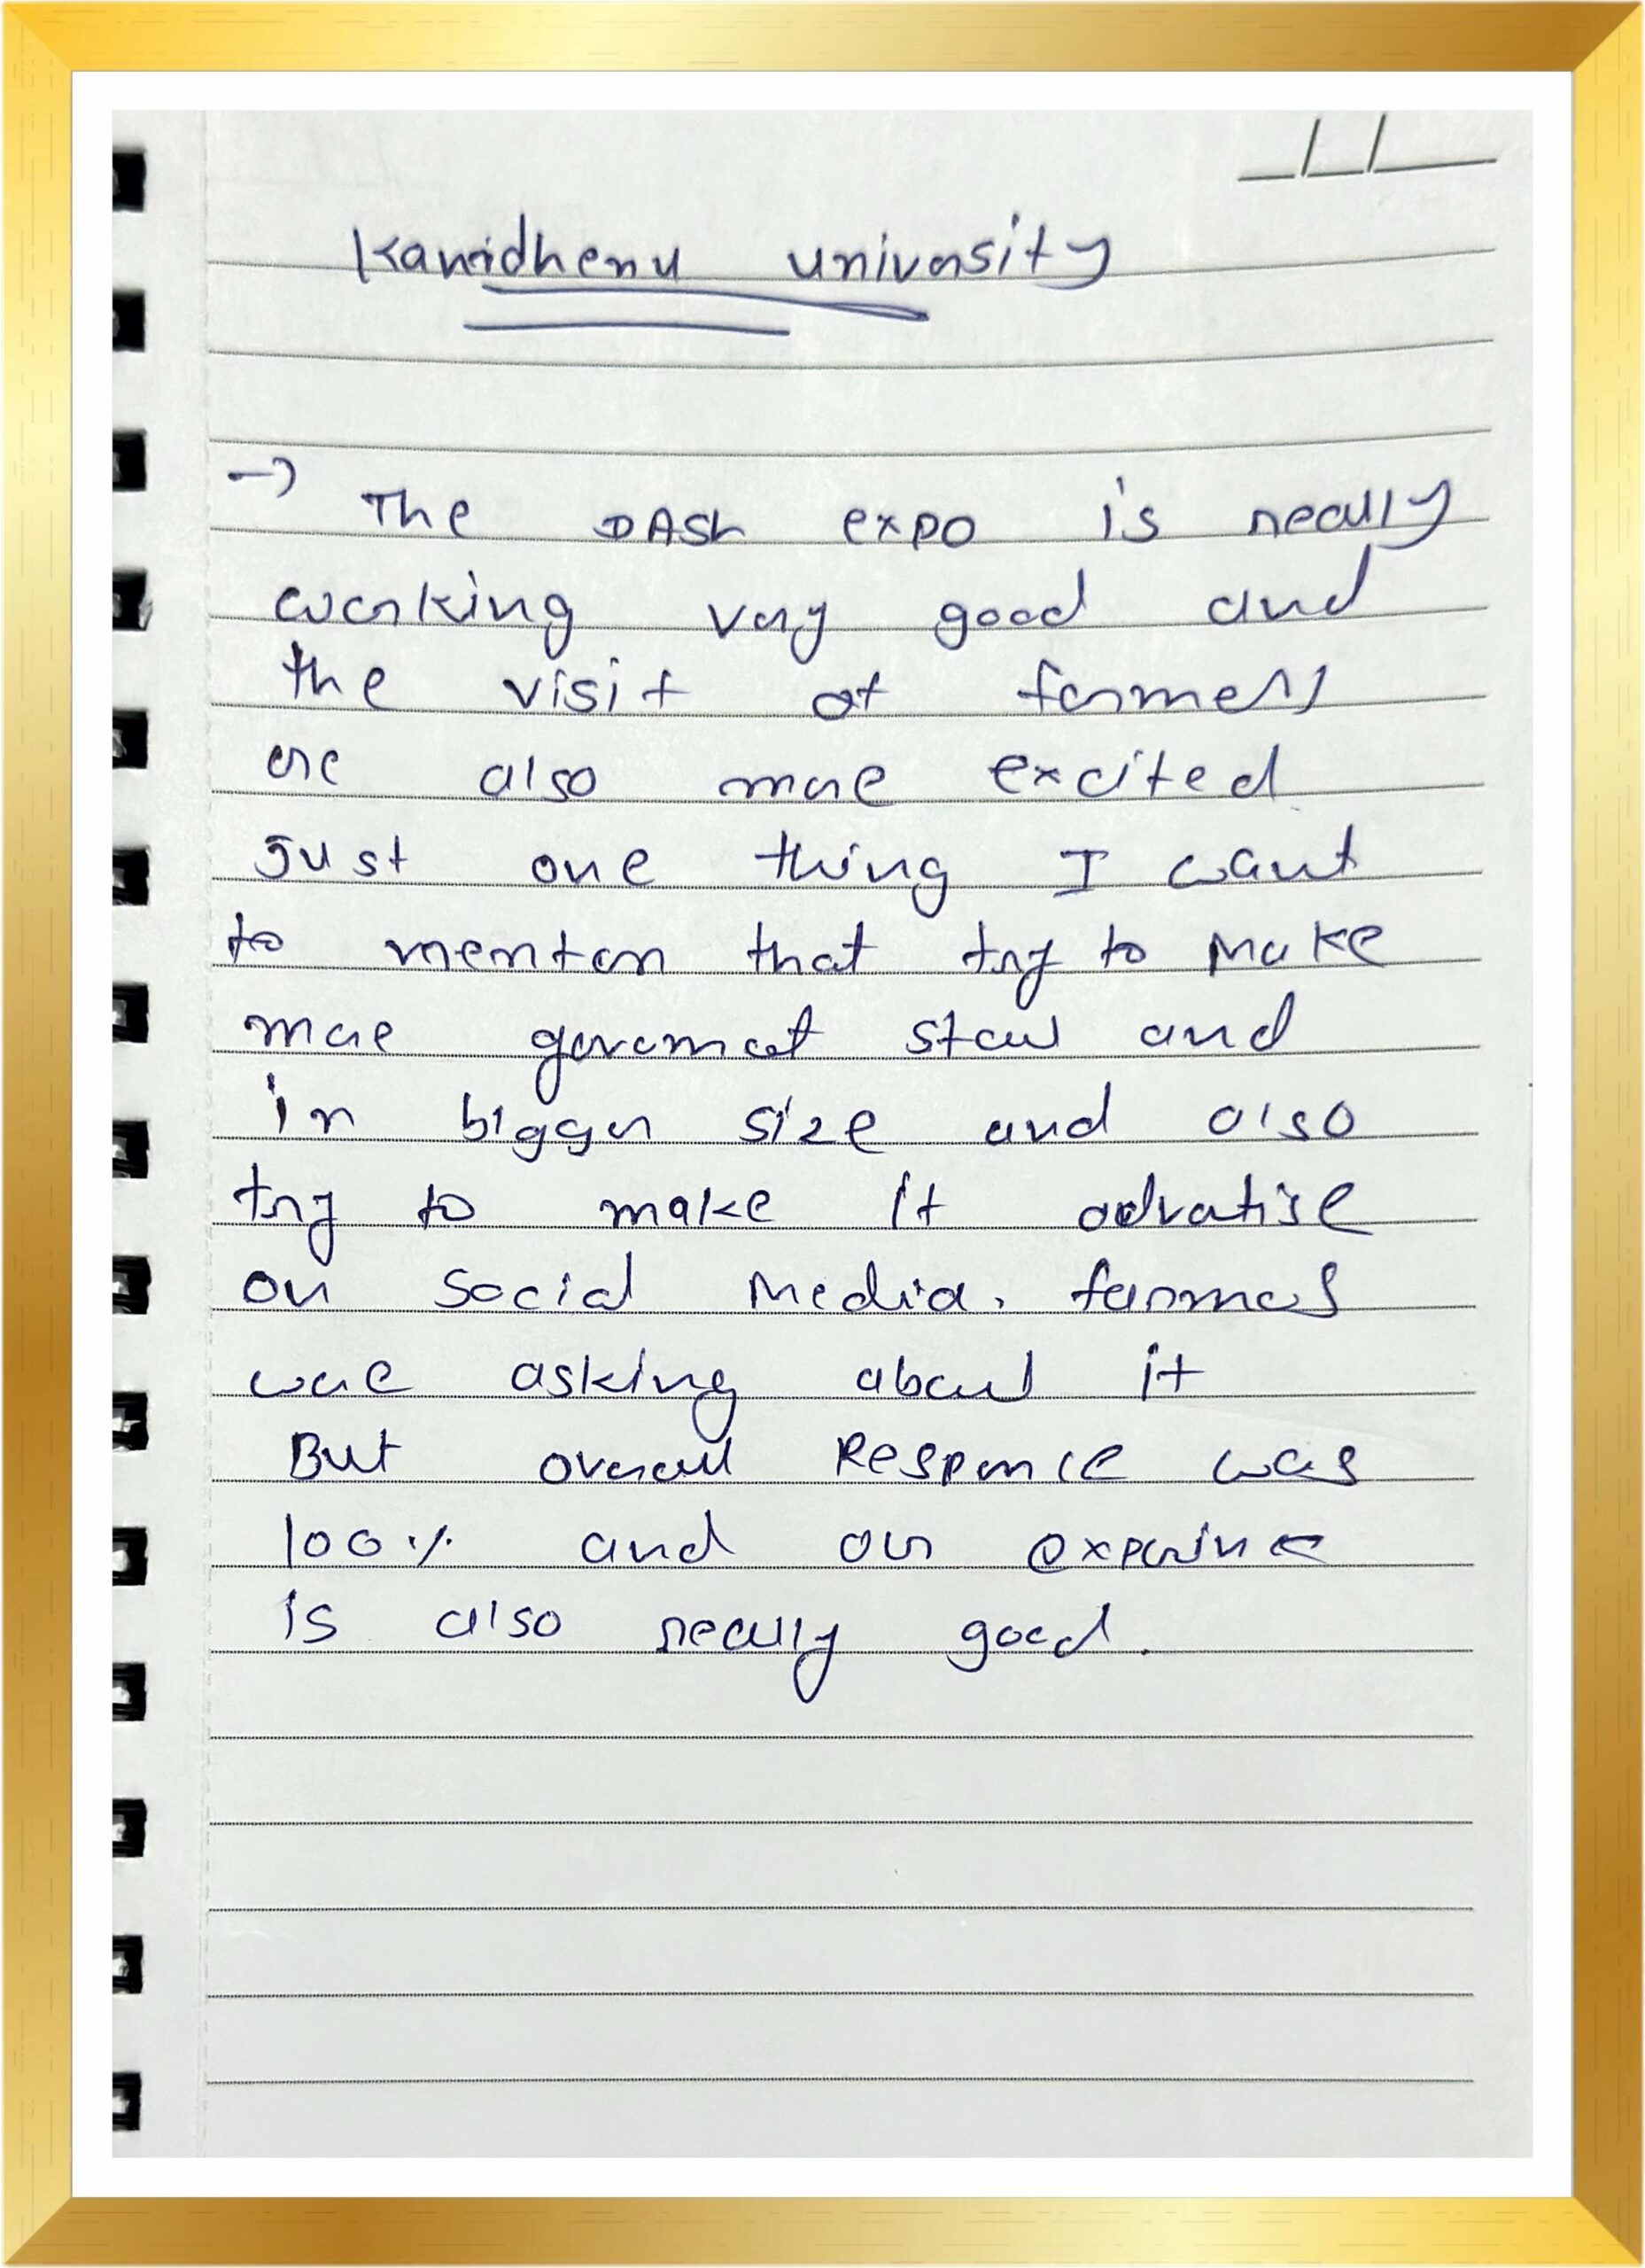 Kamdhenu university
→ The DASh expo is really
working very good and
the visit of farmers
are also more excited
Just one thing I want
to menton that try to Make
more goverment stall and
in bigger size and also
try to make it advertise
on Social Media. farmers
were asking about it
But overall Responce was
100% and our experince
is also really good.